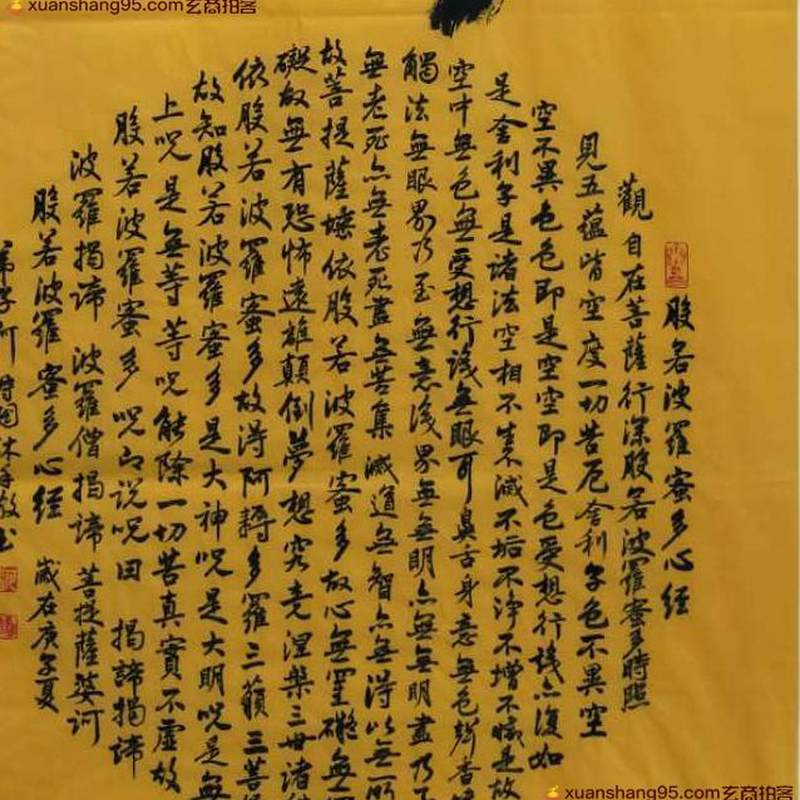 xuanshang95.com玄商拍客
般若波羅蜜多心經
觀自在菩薩行深般若波羅蜜多時照
見五蘊皆空度一切苦厄舍利子色不異空
空不異色色即是空空即是色受想行識亦復如
是舍利子是諸法空相不生不滅不垢不淨不增不減是故
空中無色無受想行識無眼耳鼻舌身意無色聲香
觸法無眼界乃至無意識界無無明亦無無明盡乃
無老死亦無老死盡無苦集滅道無智亦無得以無所
故菩提薩埵依般若波羅蜜多故心無罣礙無
礙故無有恐怖遠離顛倒夢想究竟涅槃三世諸
依般若波羅蜜多故得阿耨多羅三藐三菩
故知般若波羅蜜多是大神呪是大明呪是無
上呪是無等等呪能除一切苦真實不虛故
般若波羅蜜多呪即說呪曰 揭諦揭諦
波羅揭諦 波羅僧揭諦 菩提薩婆訶
般若波羅蜜多心經 歲在庚子夏
xuanshang95.com玄商拍客